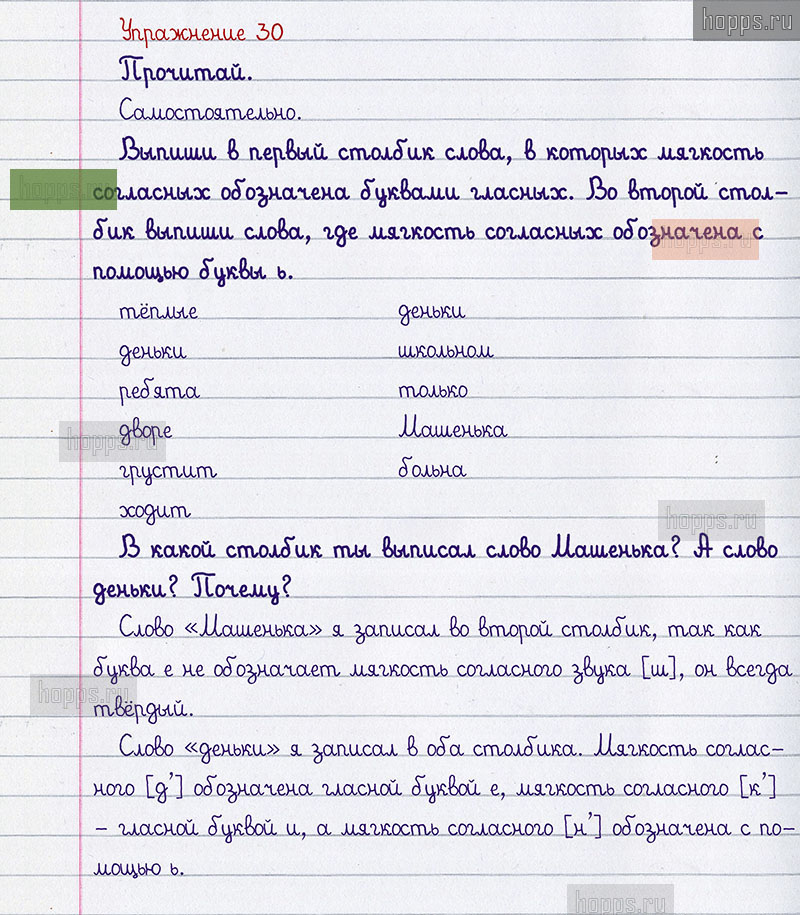 hopps.ru
Упражнение 30
Прочитай.
Самостоятельно.
Выпиши в первый столбик слова, в которых мягкость
согласных обозначена буквами гласных. Во второй стол-
бик выпиши слова, где мягкость согласных обозначена с
помощью буквы ь.
тёплые деньки
деньки школьном
ребята только
дворе Машенька
грустит больна
ходит
В какой столбик ты выписал слово Машенька? А слово
деньки? Почему?
Слово «Машенька» я записал во второй столбик, так как
буква е не обозначает мягкость согласного звука [ш], он всегда
твёрдый.
Слово «деньки» я записал в оба столбика. Мягкость соглас-
ного [д'] обозначена гласной буквой е, мягкость согласного [к']
– гласной буквой и, а мягкость согласного [н'] обозначена с по-
мощью ь.
hopps.ru
hopps.ru
hopps.ru
hopps.ru
hopps.ru
hopps.ru